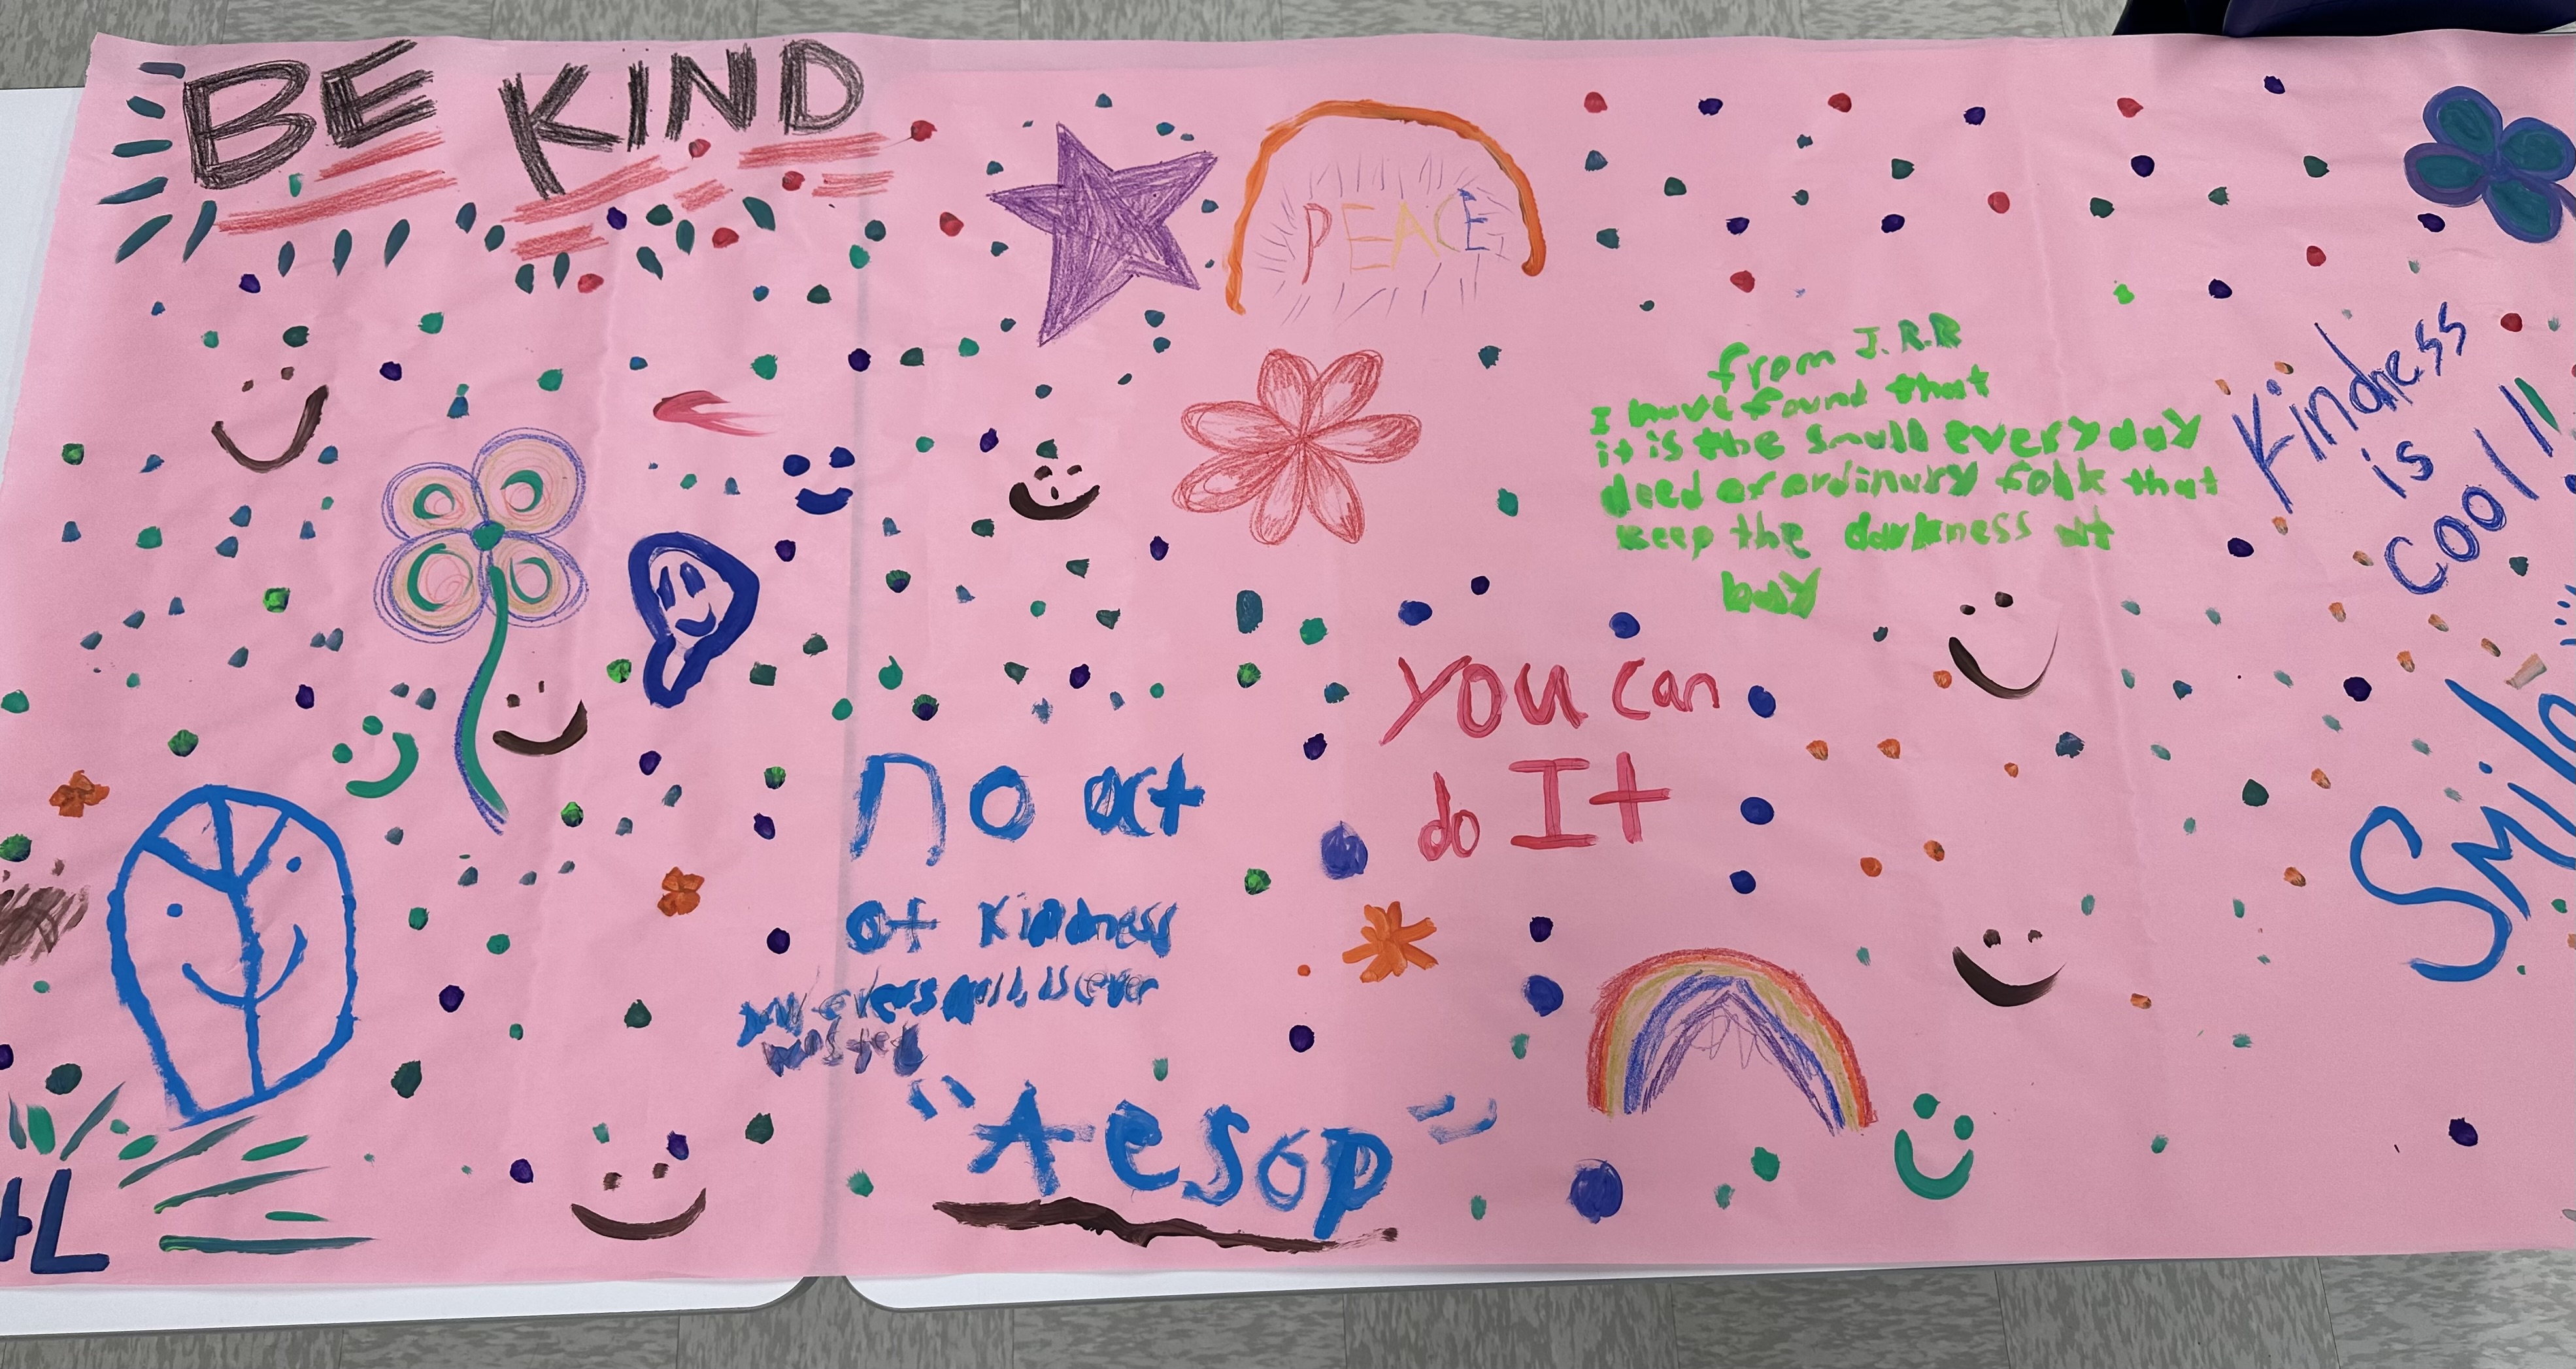 BE KIND
PEACE
from J.R.R
I have found that
it is the small everyday
deed of ordinary folk that
keep the darkness at
bay
Kindness
is
cool!!
you can
do It
Smile
no act
of Kindness
is ever
wasted
"Aesop"